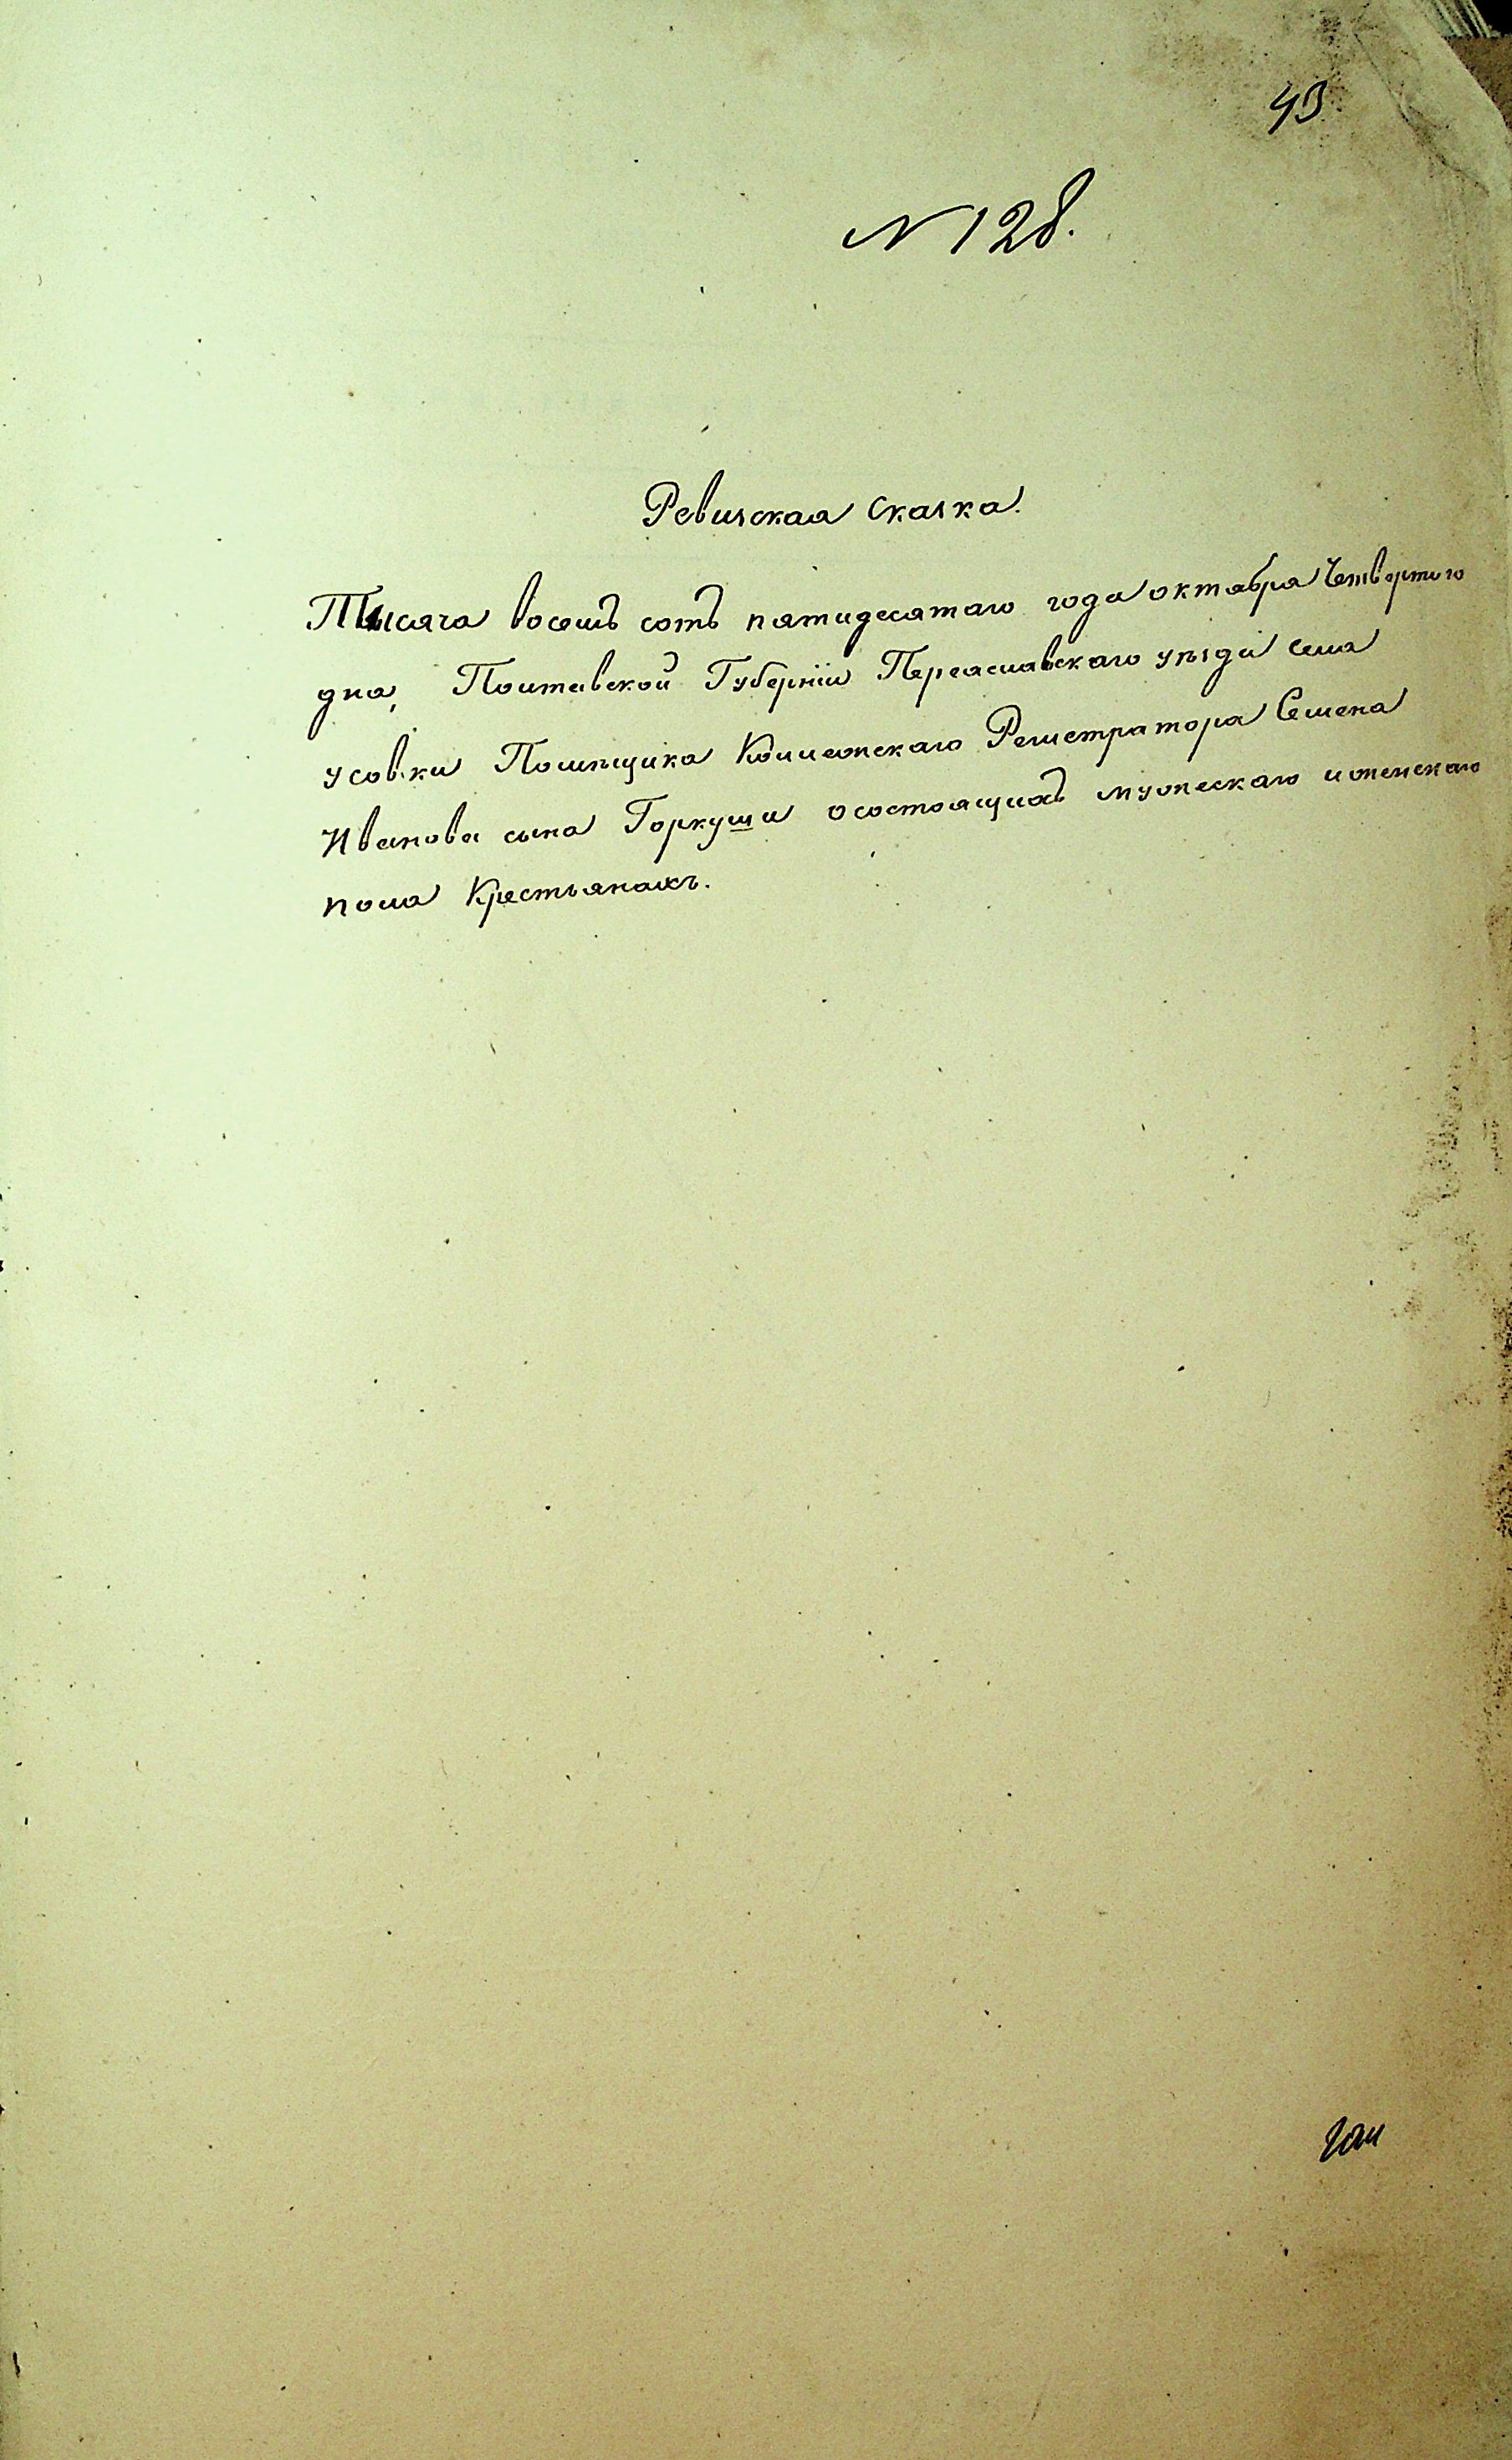 43
N 128.
Ревизская Сказка.
Тысяча восемь сотъ пятидесятаго года октября Четвертого
дня, Полтавской Губерніи Переяславскаго уѣзда села
Усовки Помѣщика Коллежскаго Регистратора Семена
Иванова сына Горкуши о состоящихъ мужескаго и женскаго
пола Крестьянахъ.